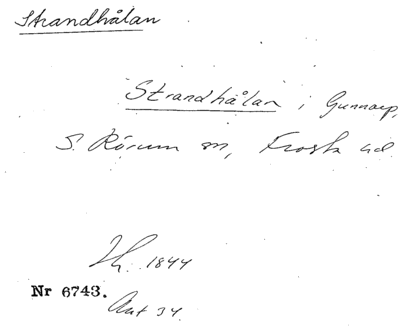 Strandhålan
Strandhålan i Gunnarp,
S. Rörum sn, Frosta hd
Jh. 1844
Nr 6743.
Ant 34